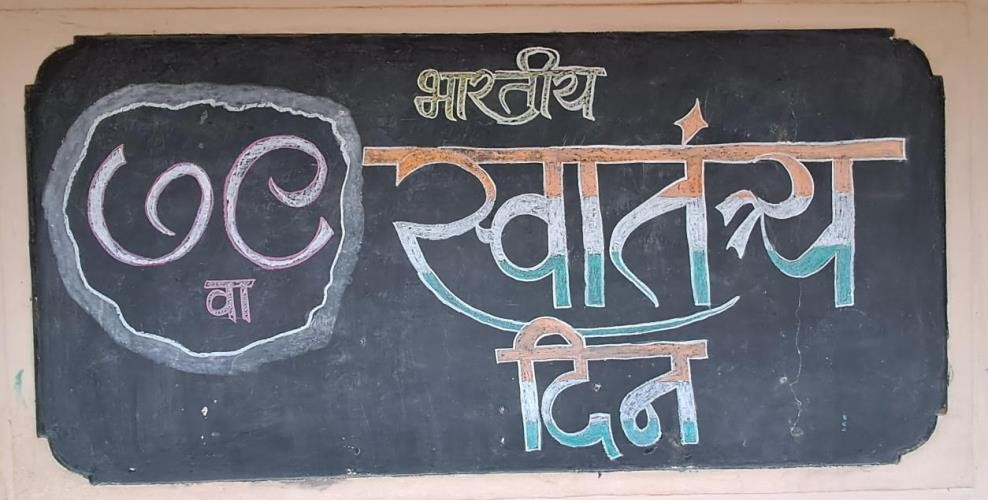 ७९
वा
भारतीय
स्वातंत्र्य
दिन